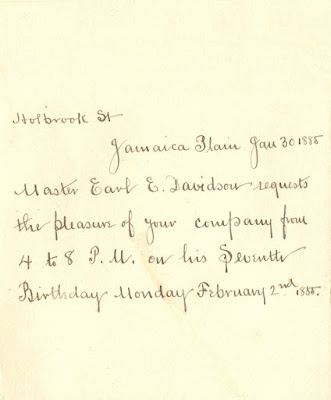 Holbrook St
Jamaica Plain Jan 30 1885
Master Earl E. Davidson requests
the pleasure of your company from
4 to 8 P.M. on his Seventh
Birthday Monday February 2nd 1885.